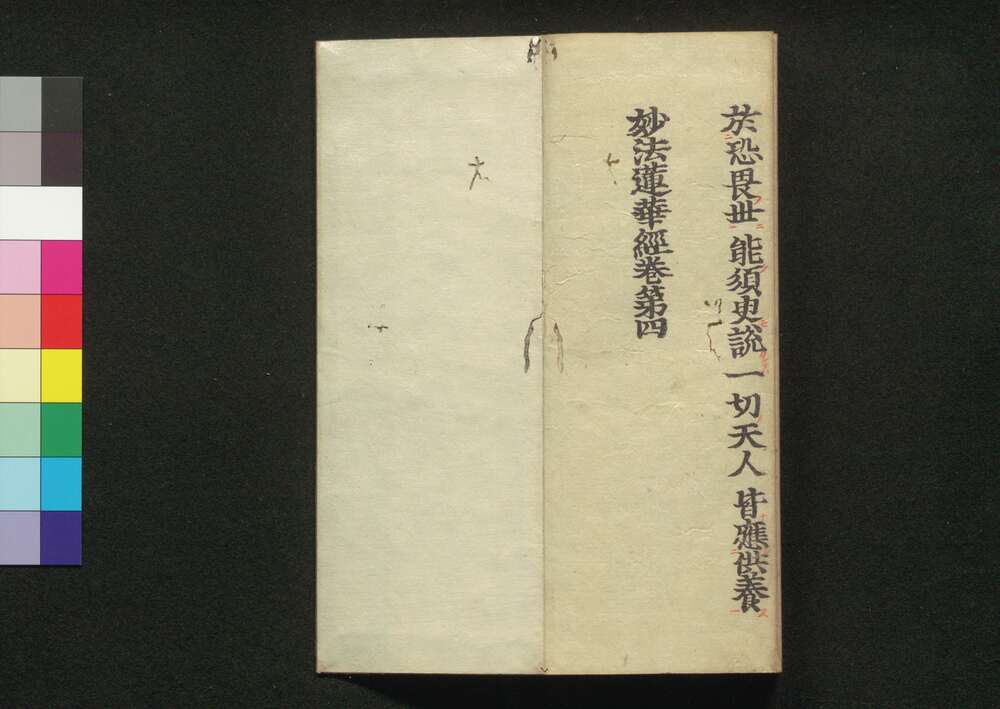 於恐畏世 能須臾説 一切天人 皆應供養
妙法蓮華經卷第四